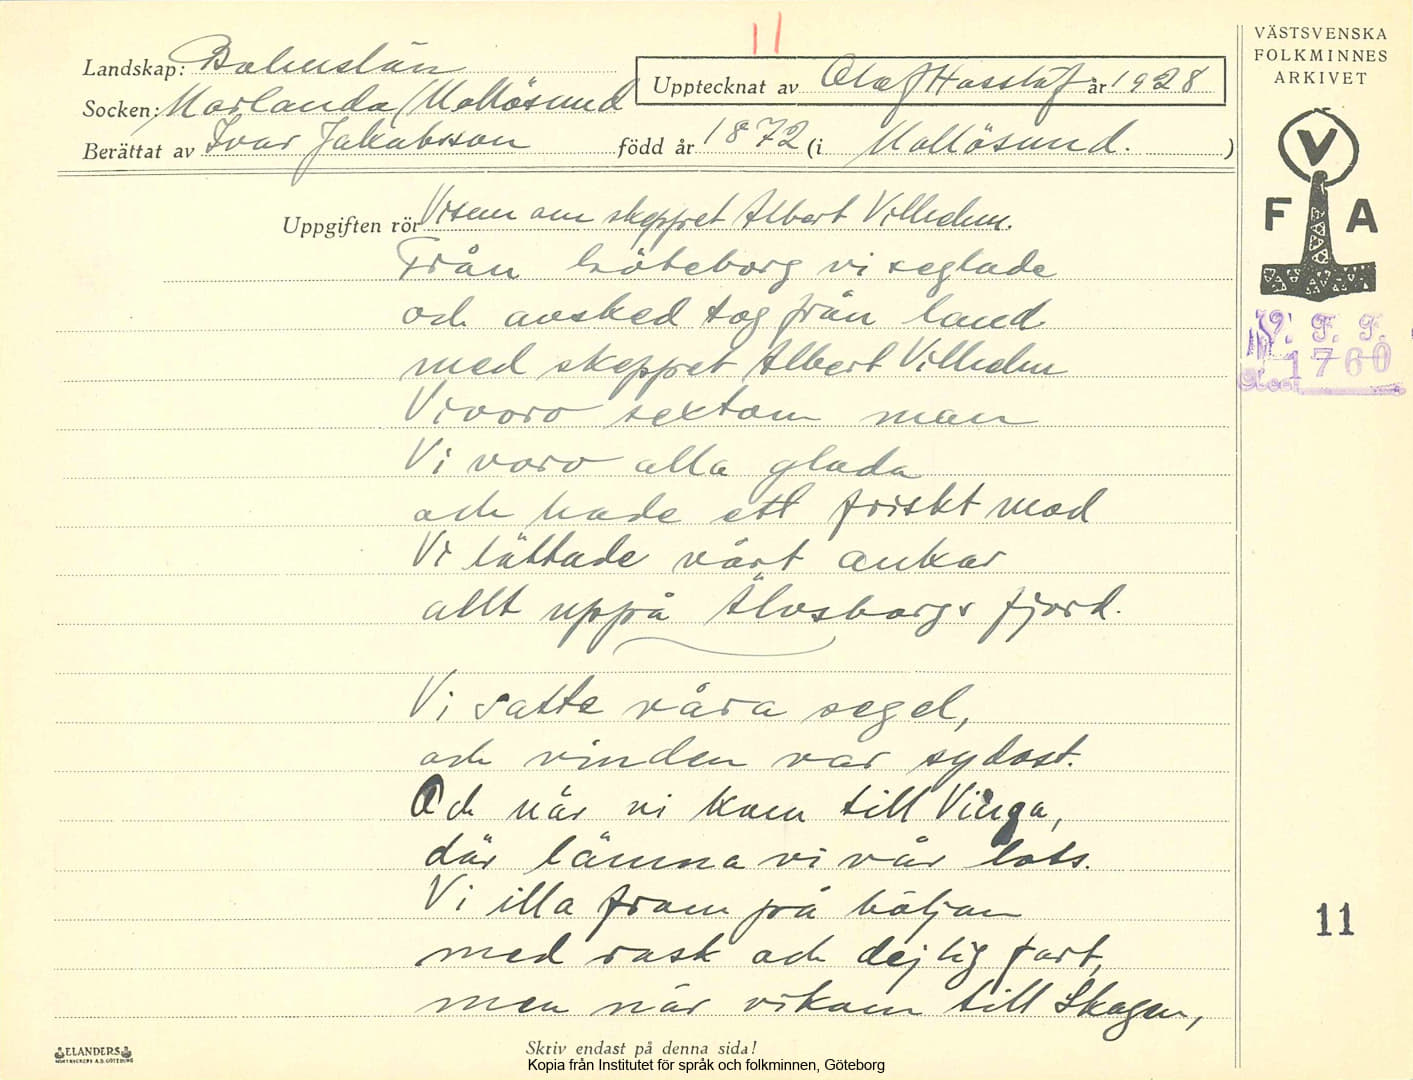 11
VÄSTSVENSKA
FOLKMINNES
ARKIVET
Landskap: Bohuslän
Upptecknat av Olof Hasslöf år 1928
Socken: Morlanda/Mollösund
Berättat av Ivar Jakobsson född år 1872 (i Mollösund.)
V
F A
V. F. F.
1760
Uppgiften rör Visan om skeppet Albert Vilhelm.
Från Göteborg vi seglade
och avsked tog från land
med skeppet Albert Vilhelm
Vi voro sexton man
Vi voro alla glada
och hade ett friskt mod
Vi lättade vårt ankar
allt uppå Älvsborgs fjord.
Vi satte våra segel,
och vinden var sydost.
Och när vi kom till Vinga,
där lämna vi vår lots.
Vi illa fram på böljan
med rask och dejlig fart,
men när vi kom till Skagen,
11
ELANDERS
Skriv endast på denna sida!
Kopia från Institutet för språk och folkminnen, Göteborg